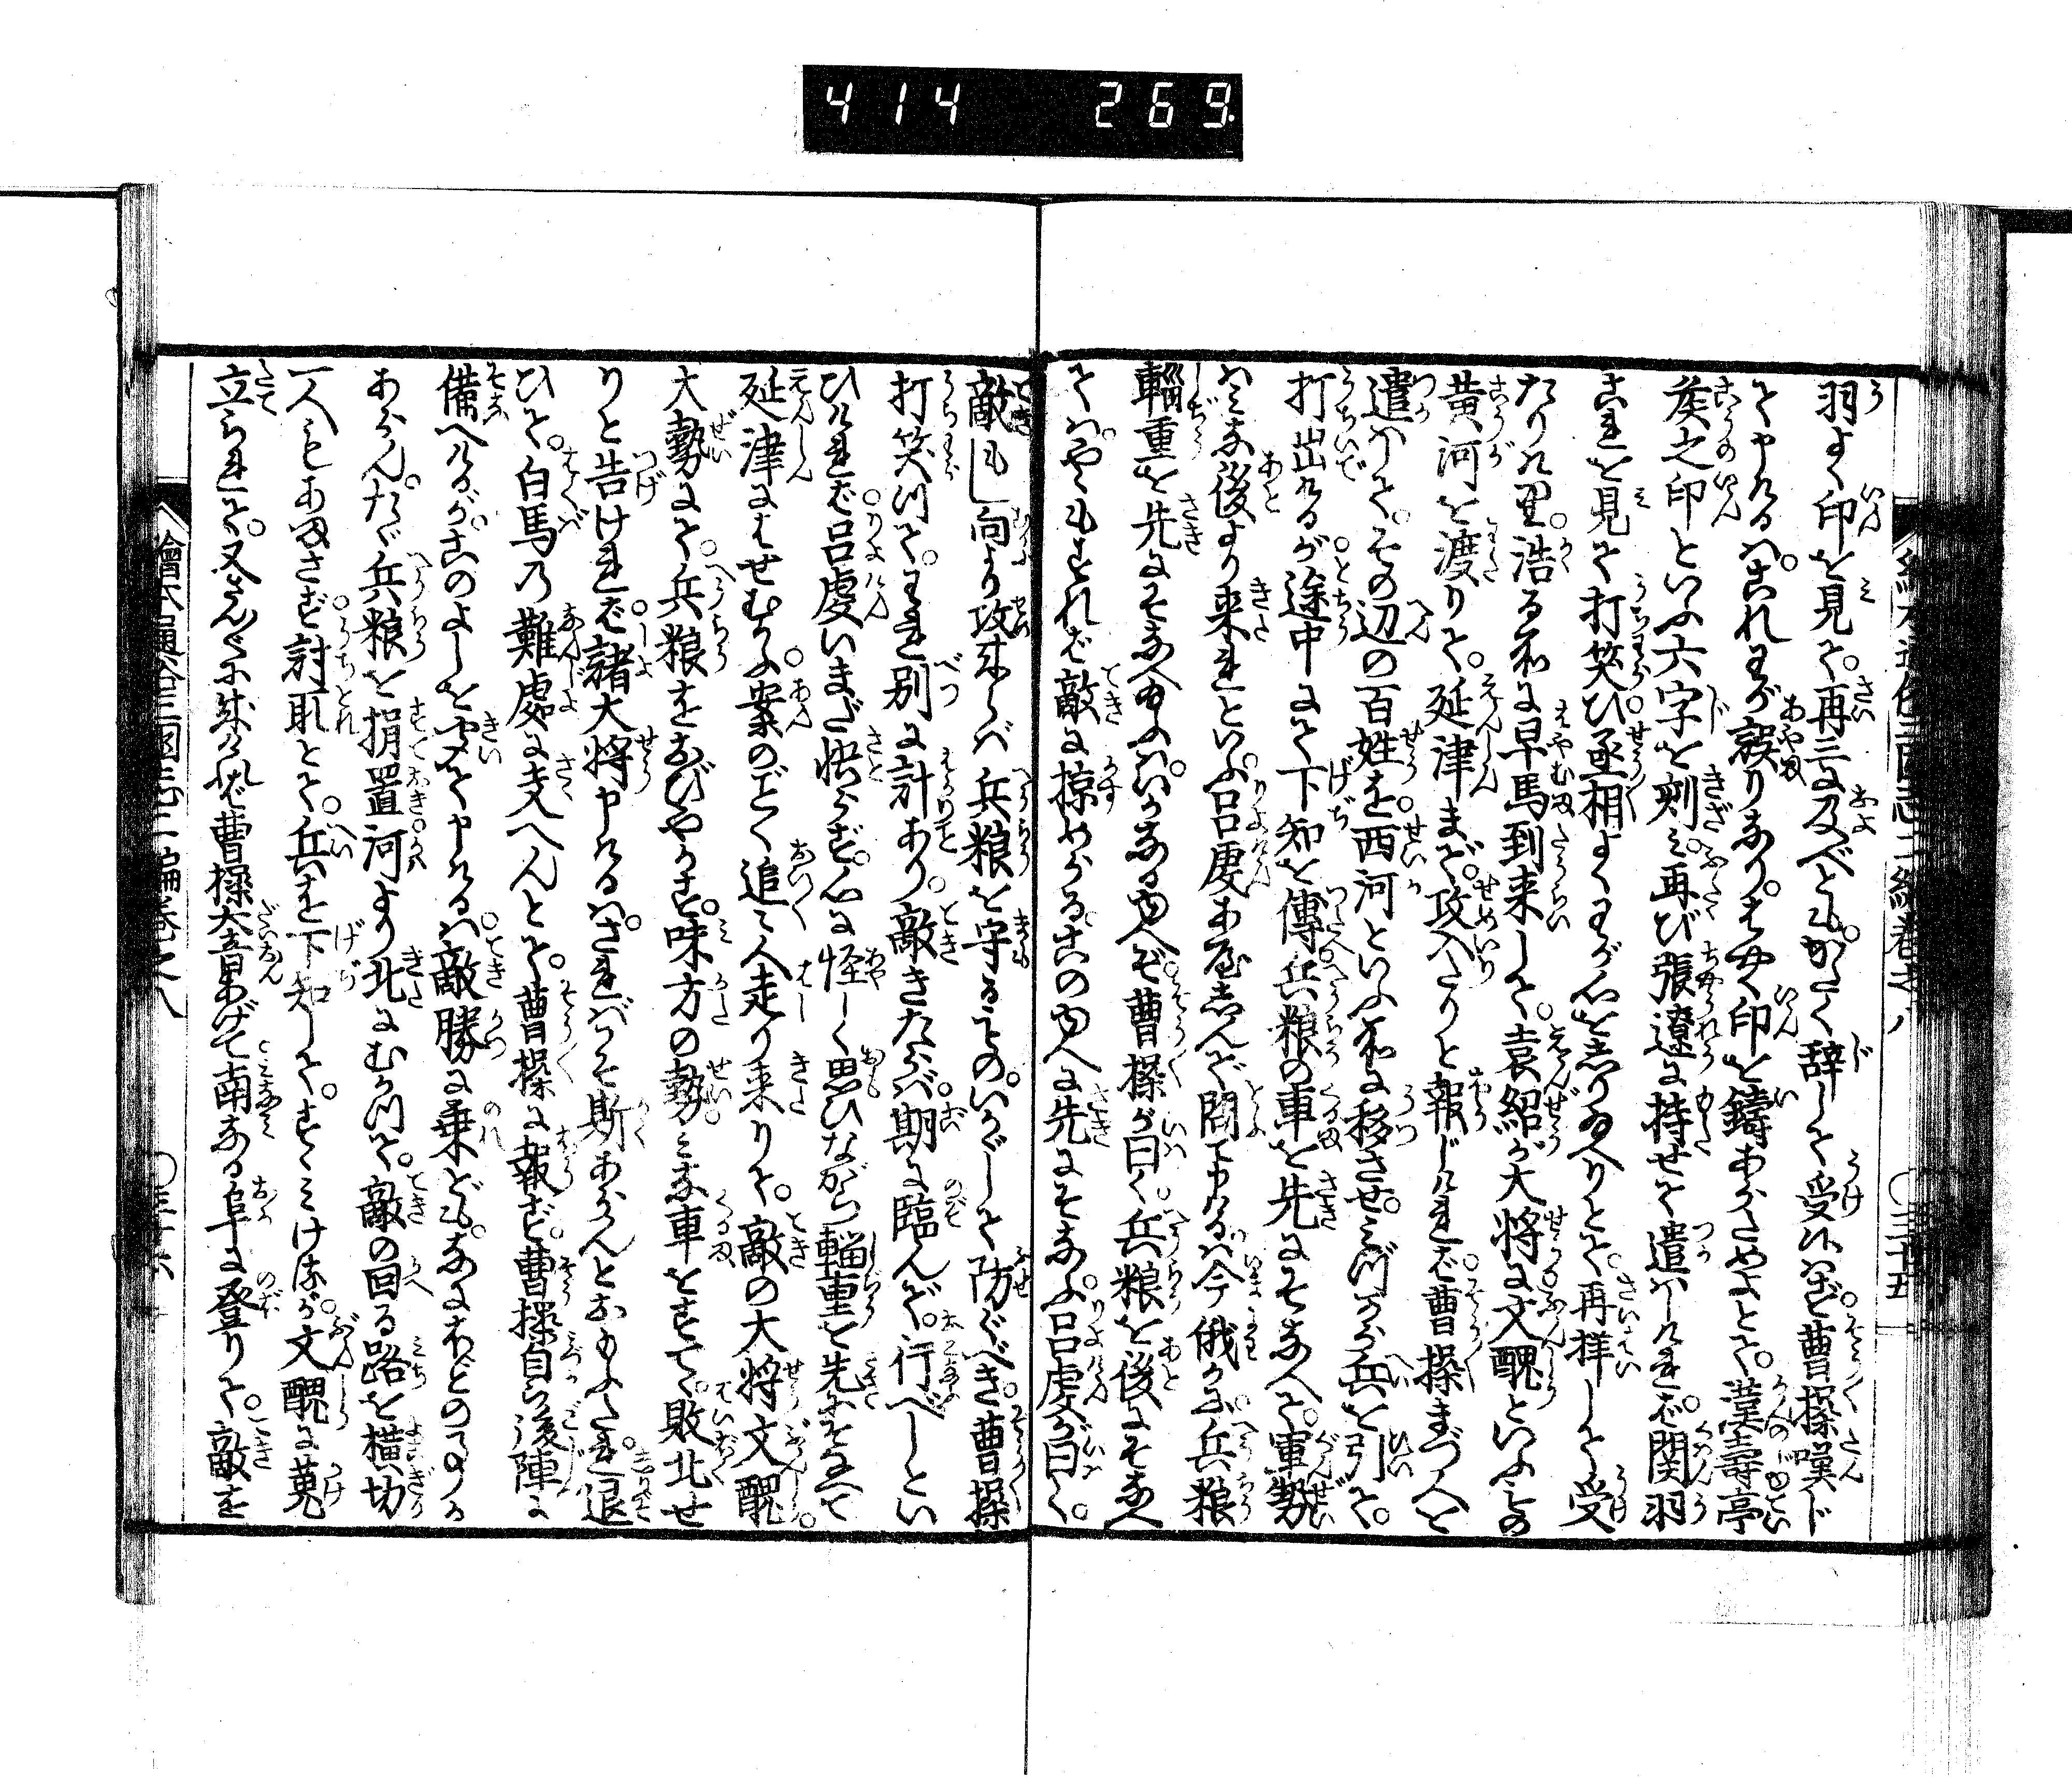 414 269
羽よく印を見て。再三に及べども。かたく辞して受ざれば。曹操嘆じ
て申けるは。これわが誤りなり。はやく印を鋳あらためよとて。漢壽亭
侯之印といふ六字を刻み。再び張遼に持せて遣はしければ。関羽
これを見て打笑ひ丞相よくわが心をしり給へりとて。再拝して受
たりけり。浩る所に早馬到来して。袁紹が大将に文醜といふもの
黄河を渡りて。延津まで。攻入たりと報じければ曹操まづ人を
遣はして。その辺の百姓を。西河といふ所に移させ。みづから兵を引て。
打出けるが途中にて下知を傳へ。兵粮の車を先にそなへて。軍勢
はみな後より来れといふ。呂虔あやしんで問て申けるは今俄かに兵粮
輜重を先にそなへ給ふは。いかなるゆへぞ曹操が曰く兵粮を後にそなへ
ては。やゝもすれば敵に掠めらる。このゆへに先にそなふ。呂虔が曰く。
敵もし向より攻来らば兵粮を守るもの。いかゞして防ぐべき。曹操
打笑つて。われ別に計あり。敵きたらば。期に臨んで。行べしとい
ひければ呂虔いまだ悟らず。心に怪しく思ひながら輜重を先にそなへて
延津にはせむかふ案のごとく追々人走り来りて。敵の大将文醜
大勢にて兵粮をおびやかす。味方の勢みな車をすてゝ。敗北せ
りと告ければ諸大将申けるは。さればこそ斯あらんとおもふたれ。退
ひて。白馬の難處に支へんとて。曹操に報ず。曹操自ら後陣に
備へけるが。このよしを聞て申けるは。敵勝に乗ども。なにほどの事か
あらん。たゞ兵粮を捐置河より北にむかつて。敵の回る路を横切
一人もあまさず討取とて。兵を下知して。すゝみけるが。文醜に蒐
立られて。又さん〴〵に成ければ曹操大音あげて南なる阜に登りて。敵を
繪本通俗三國志二編巻之八 〇三十五
繪本通俗三國志二編巻之八 〇三十六